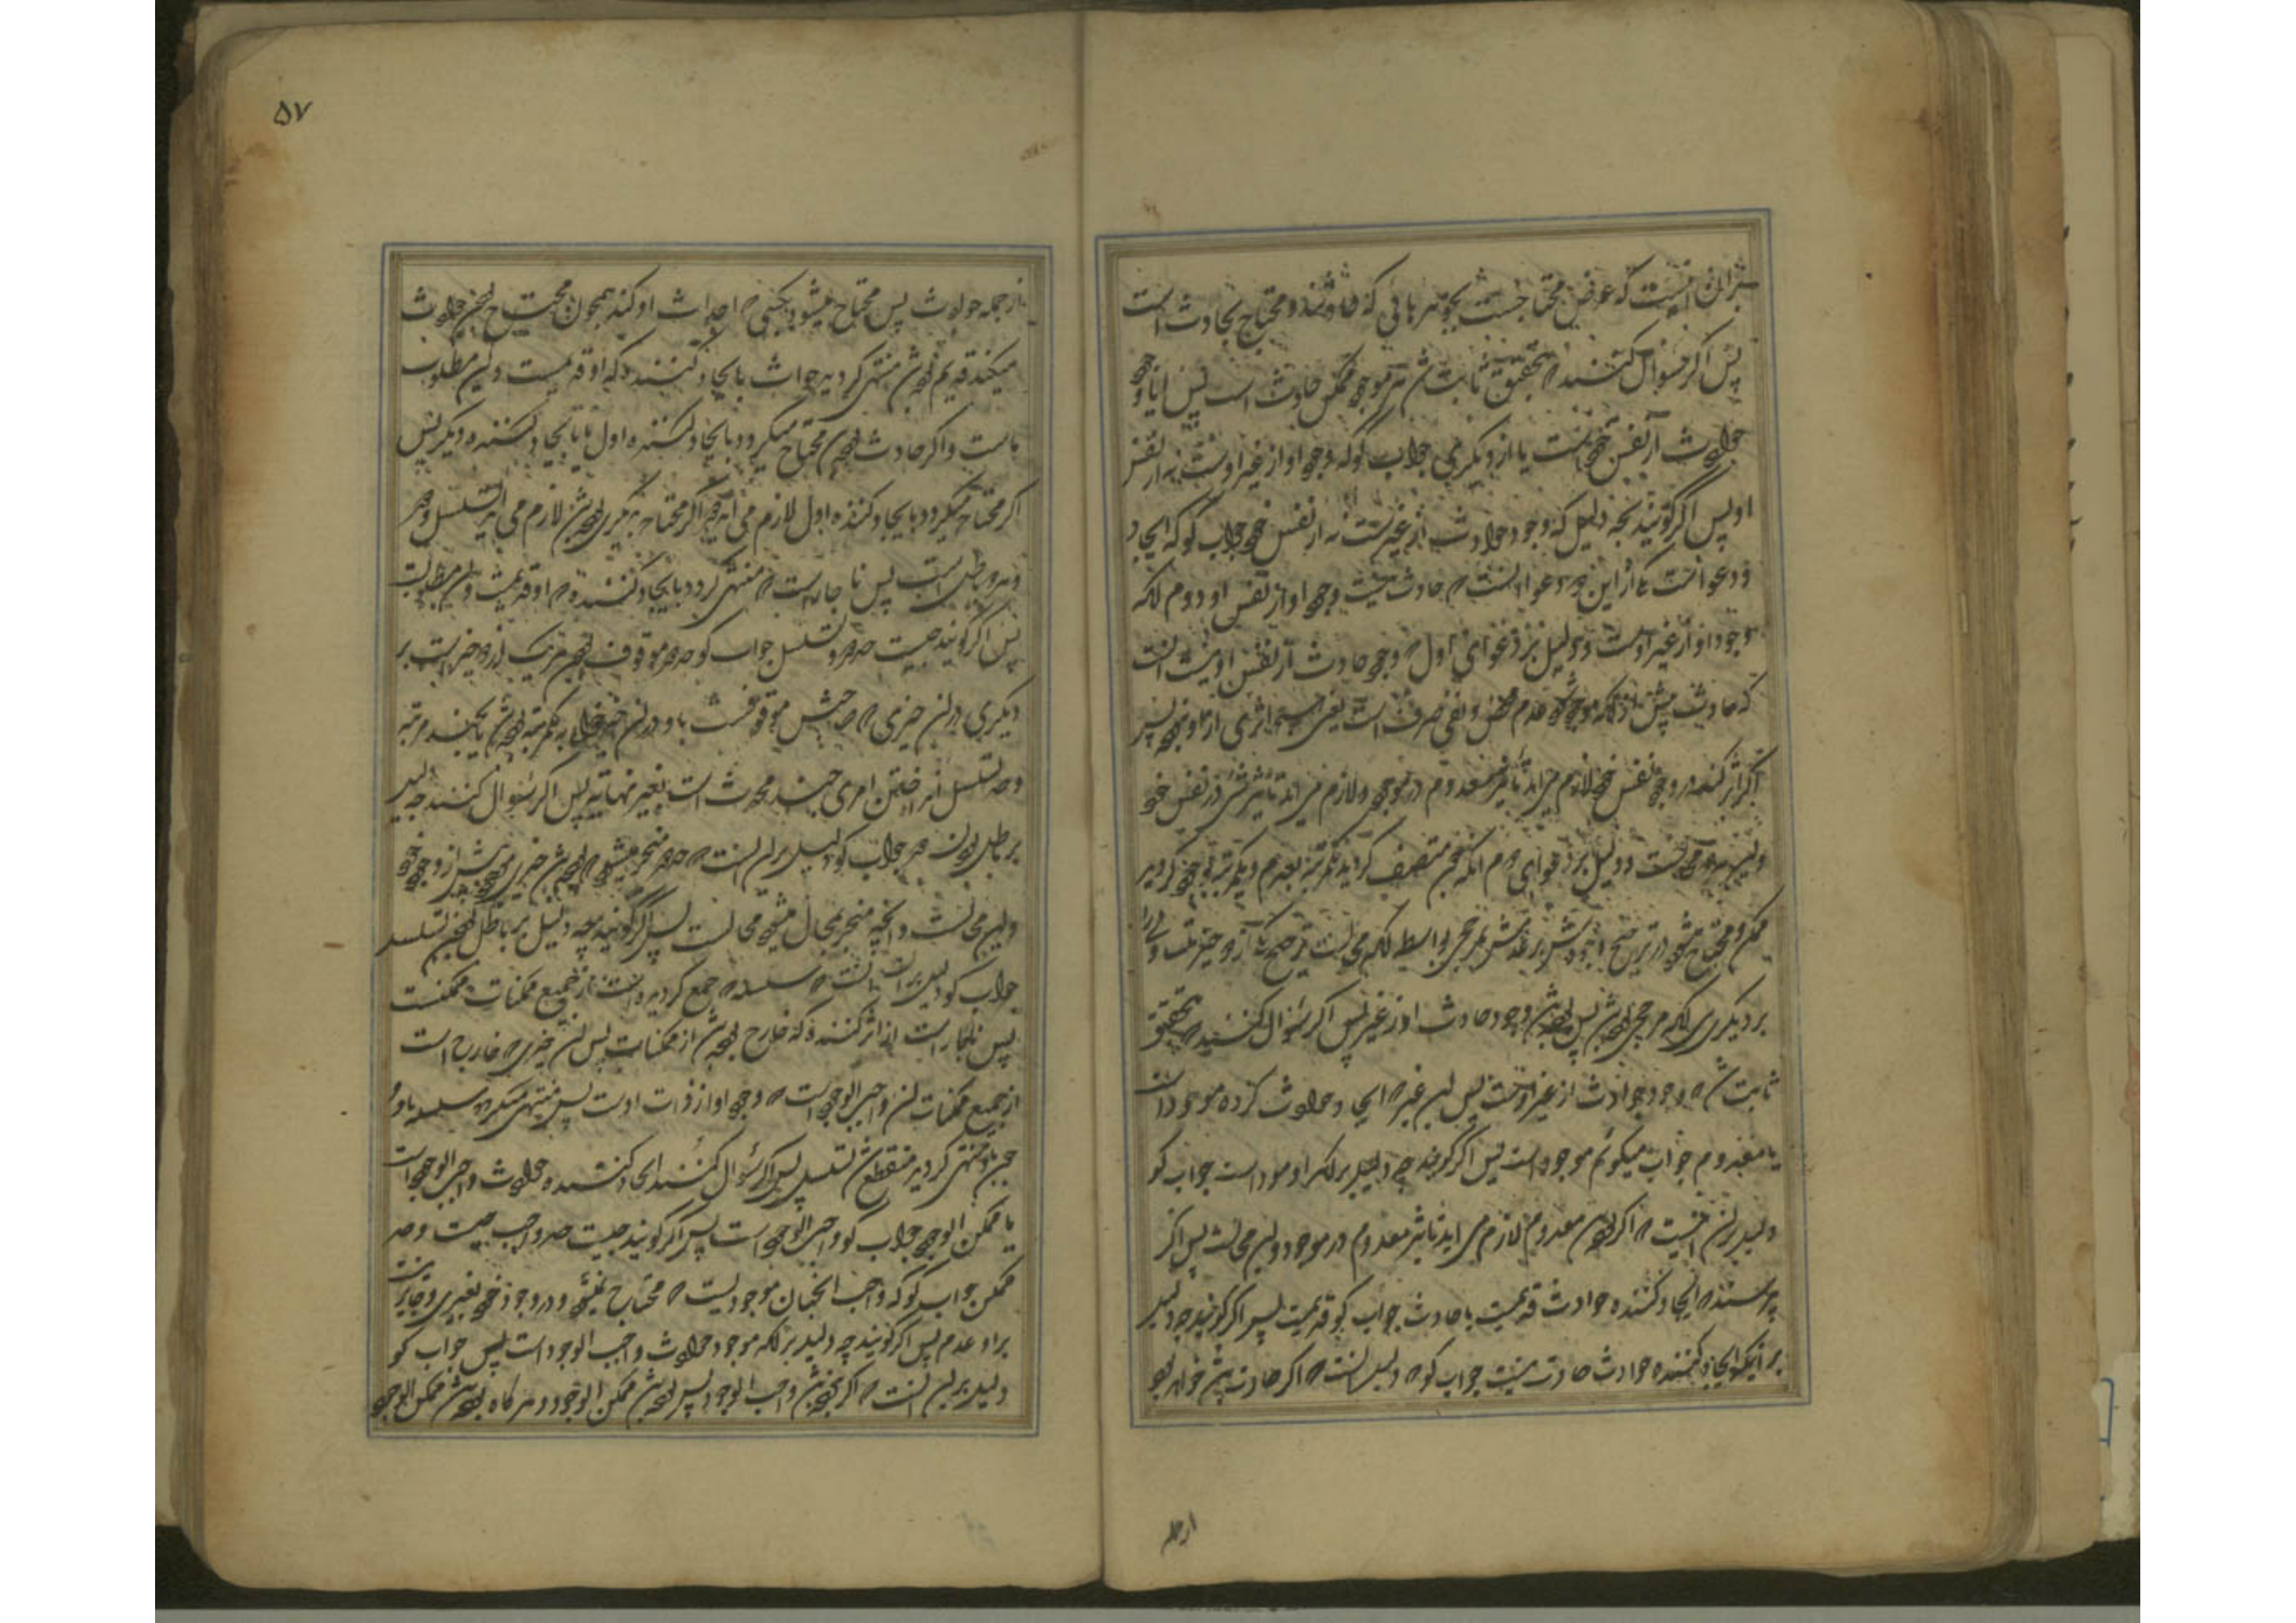 بر آن اینست که عرض محتاجست بجوهرهائی که حادثند و محتاج بحادث است
پس اگر سؤال کنند که بتحقیق ثابت شد هر موجود ممکن حادث است پس ایا وجود
حوادث از نفس خود است یا از دیگری جواب گو که وجود او از غیر اوست نه از نفس
او پس اگر گویند بچه دلیل که وجود حوادث از غیرست نه از نفس خود جواب گو که ایجاد
دو دعواست یکی از این دو دعوا انست که حادث نیست وجود او از نفس او دوم انکه
وجود او از غیر اوست و دلیل بر دعوای اول که وجود حادث از نفس او نیست انست
که حادث پیش از انکه موجود شود عدم محض و نفی صرف است یعنی هیچ اثری از او نبود پس
اگر اثر کند در وجود نفس خود لازم می اید تاثیر معدوم در موجود و لازم می اید تاثیر شی در نفس خود
و این هر دو محالست و دلیل بر دعوای دوم انکه ممکن متصف گردید یکمرتبه بعدم و دیگر مرتبه بوجود گردید
ممکن و محتاج میشود در ترجیح وجودش بر عدمش بمرجحی بواسطه انکه محالست ترجیح یکی از دو چیز متساوی را
بر دیگری بی انکه مرجحی بوده باشد پس بوده باشد وجود حادث او از غیر پس اگر سؤال کنند که بتحقیق
ثابت شد که وجود حوادث از غیر اوست پس این غیر که ایجاد حوادث کرده موجود است
یا معدوم جواب میگوئم موجود است پس اگر گویند چه دلیل بر انکه او موجود است جواب گو
دلیل بر ان اینست که اگر بوده باشد معدوم لازم می اید تاثیر معدوم در موجود و این محالست پس اگر
پرسند که ایجاد کننده حوادث قدیمست یا حادث جواب گو قدیمست پس اگر گویند چه دلیل
بر اینکه ایجاد کننده حوادث حادث نیست جواب گو که دلیل انست که اگر حادث باشد خواهد بود
از جمله
۵۷
از جمله حوادث پس محتاج میشود بکسی که احداث او کند همچون محتاج بودن حوادث
میکند قدیم بوده باشد منتهی گردید حوادث بایجاد کننده که او قدیمست و این مطلوب
ماست و اگر حادث بوده باشد محتاج میگردد بایجاد کننده اول یا بایجاد کننده دیگر پس
اگر محتاج میگردد بایجاد کننده اول لازم می اید دور و اگر محتاج بدیگری بوده باشد لازم می اید تسلسل و هر
دو باطل است پس ناچارست که منتهی گردد بایجاد کننده که او قدیمست و این مطلوبست
پس اگر گویند چیست حد دور و تسلسل جواب گو حد دور موقوف بودن هر یک از دو چیز است بر
دیگری در ان چیزی که صاحبش موقوفست باو در ان چیز خواه بیکمرتبه بوده باشد یا بچند مرتبه
و حد تسلسل انداختن امری چند محدث است بغیر نهایه پس اگر سؤال کنند چه دلیل
بر باطل بودن دور جواب گو دلیل بر ان انست که دور منجر میشود که بوده باشد چیزی موجود پیش از وجود خود
و این محالست و انچه منجر بمحال میشود محالست پس اگر گویند بچه دلیل بر باطل بودن تسلسل
جواب گو دلیل بر ان انست که سلسله که جمع گردیده است از جمیع ممکنات ممکنست
پس ناچار است از اثر کننده که خارج بوده باشد از ممکنات پس ان چیزی که خارج است
از جمیع ممکنات ان واجب الوجود است که وجود او از ذات اوست پس منتهی میگردد سلسله باو و
چون باو منتهی گردید منقطع شد تسلسل پس اگر سؤال کنند ایجاد کننده حوادث واجب الوجود است
یا ممکن الوجود جواب گو واجب الوجود است پس اگر گویند چیست حد واجب چیست و حد
ممکن جواب گو که واجب انچنان موجودیست که محتاج نمیشود در وجود خود بغیری و جایز نیست
بر او عدم پس اگر گویند چه دلیل بر انکه موجود حوادث واجب الوجود است پس جواب گو
دلیل بر این انست که اگر نبوده باشد واجب الوجود پس بوده باشد ممکن الوجود و هر گاه بوده باشد ممکن الوجود